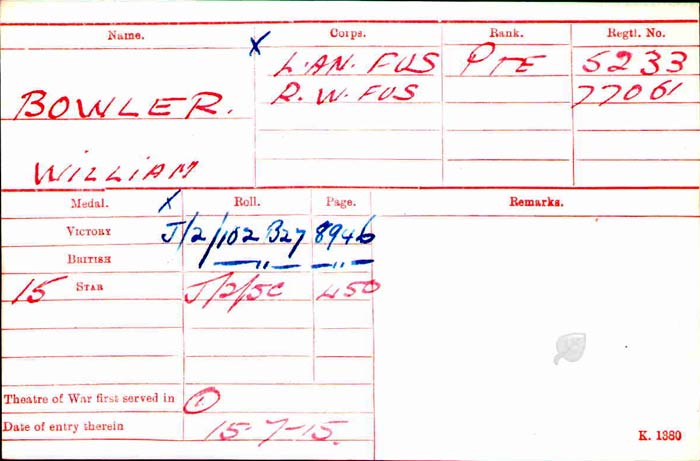 Name. Corps. Rank. Regtl. No.
X L.AN. FUS PTE 5233
BOWLER. R. W. FUS 77061
WILLIAM
Medal. X Roll. Page. Remarks.
VICTORY J/2/102 B27 8946
BRITISH —"— —"—
15 STAR J/2/5C 450
Theatre of War first served in (1)
Date of entry therein 15-7-15.
K. 1380